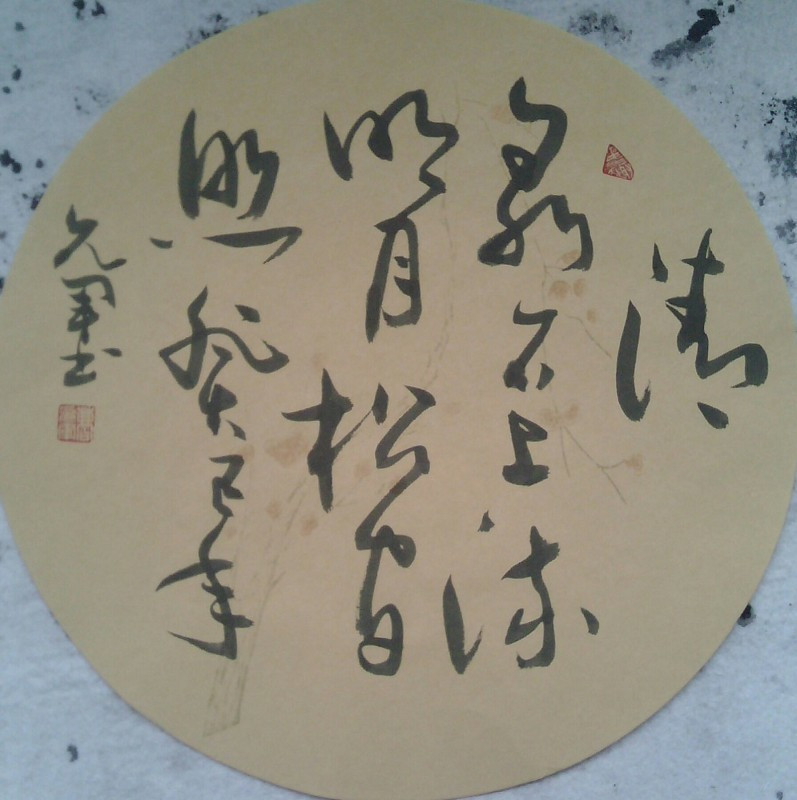 清
泉石上流
明月松间
照癸巳年